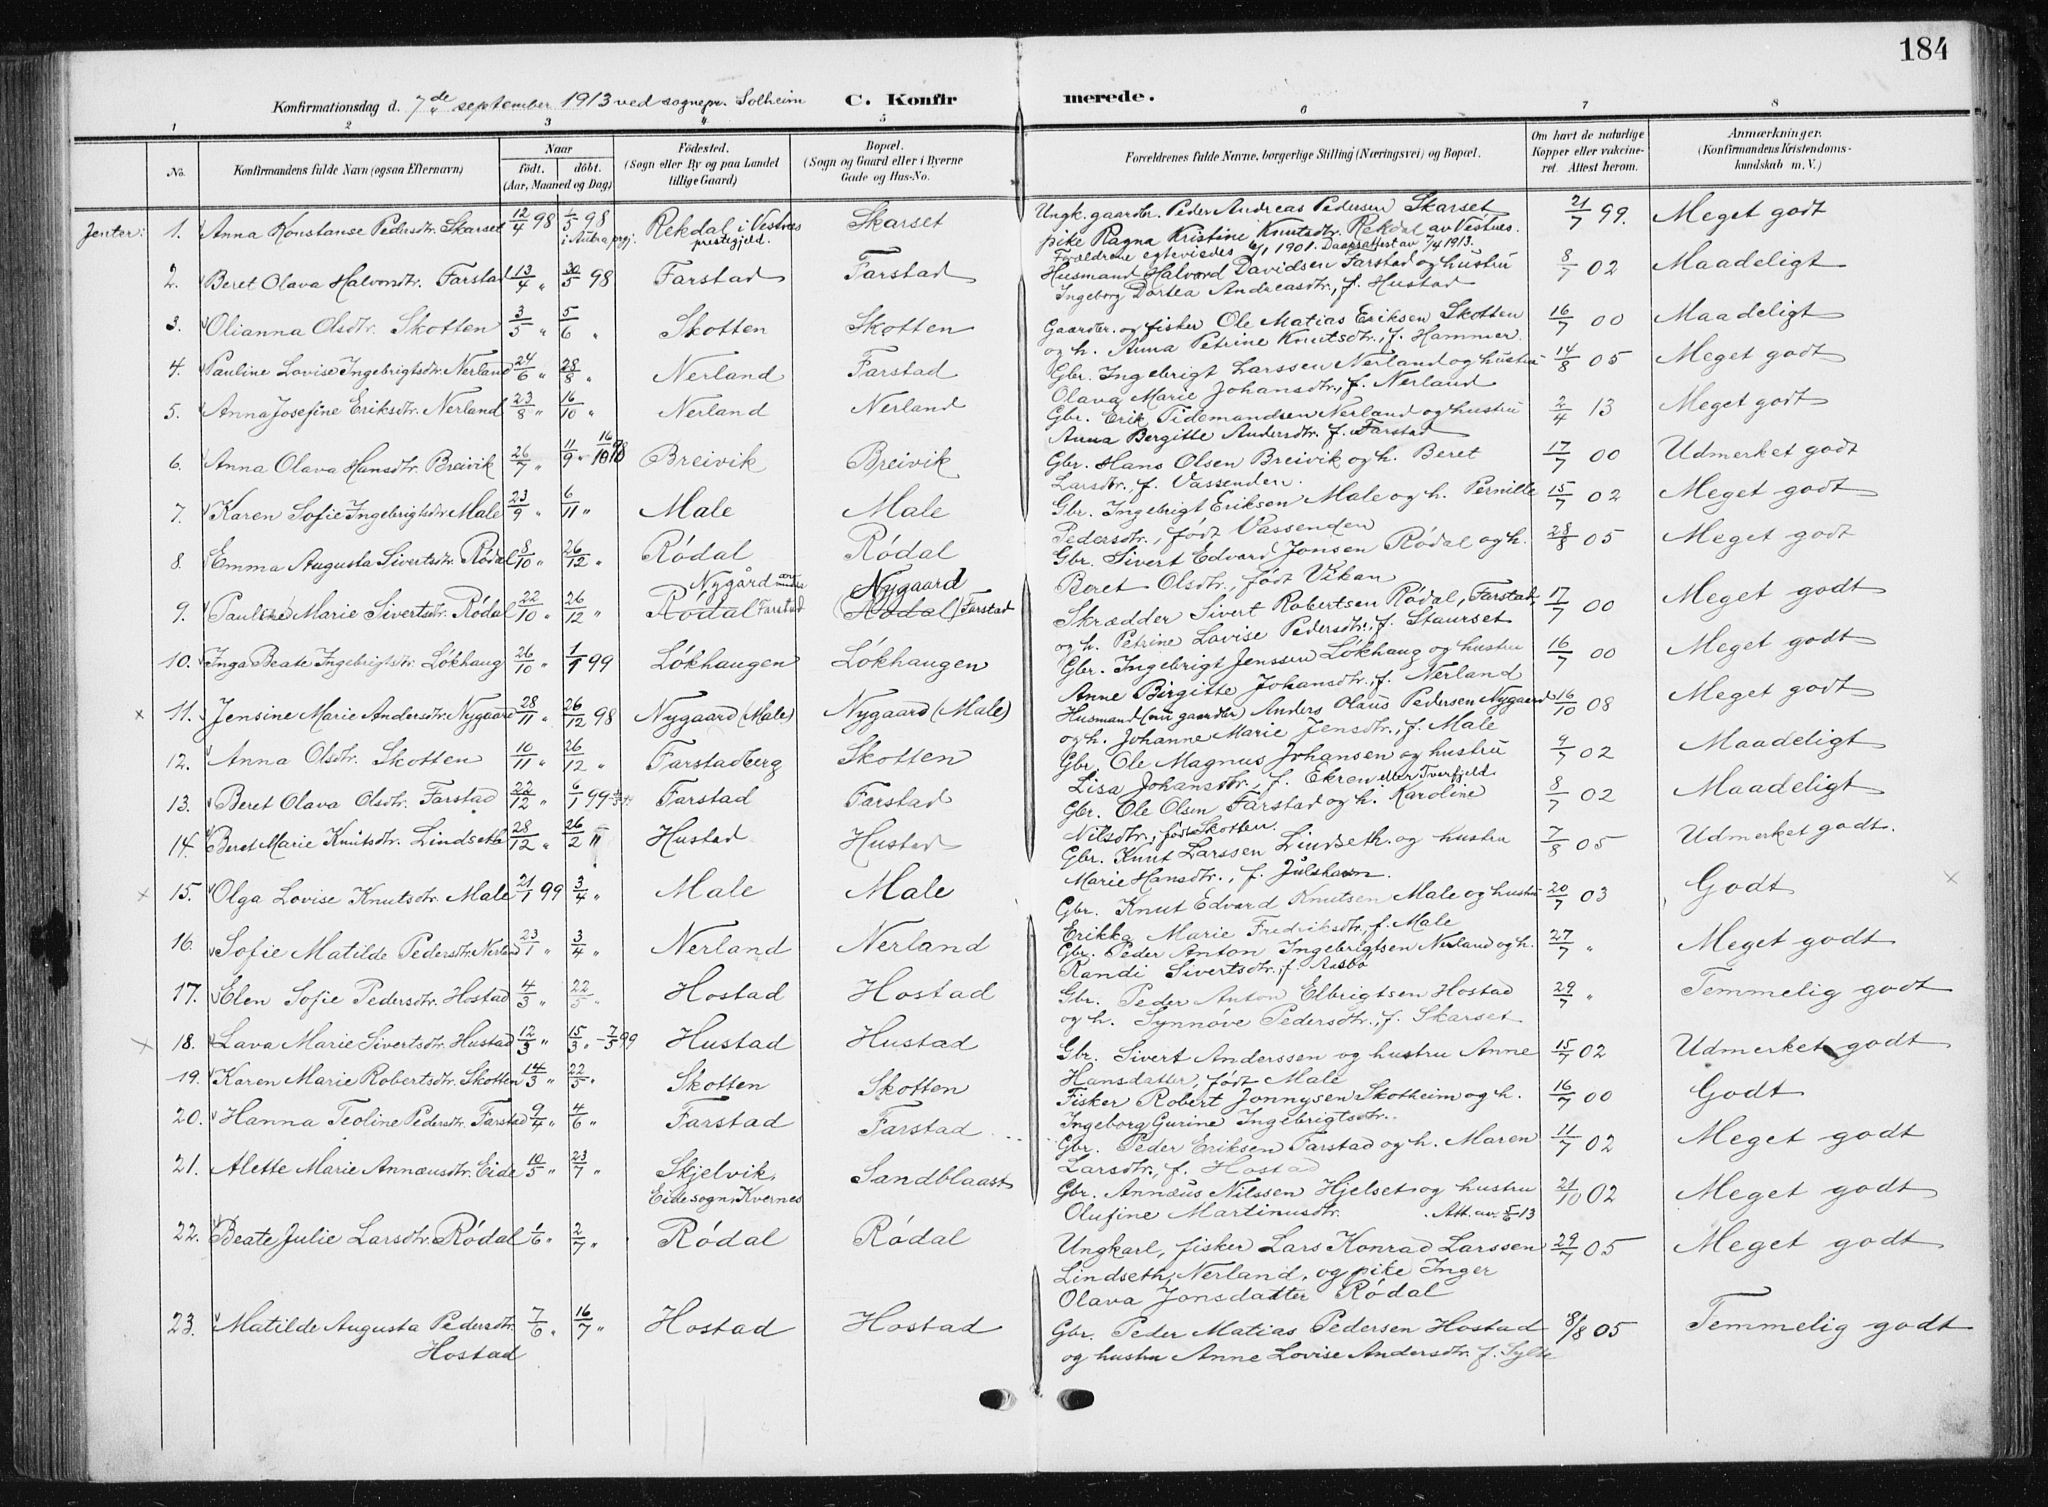 184
Konfirmationsdag d. 7de september 1913 ved sognepr. Solheim C. Konfirmerede.
1 2 3 4 5 6 7 8
No. Konfirmandens fulde Navn (ogsaa Efternavn) Naar født. døbt. (Aar, Maaned og Dag) Fødested. (Sogn eller By og paa Landet tillige Gaard) Bopæl. (Sogn og Gaard eller i Byerne Gade og Hus-No. Forældrenes fulde Navne, borgerlige Stilling (Næringsvei) og Bopæl. Om havt de naturlige Kopper eller vakcineret. Attest herom. Anmærkninger. (Konfirmandens Kristendomskundskab m. V.)
Jenter: 1. Anna Konstanse Pedersdtr. Skarset 12/4 98 1/5 98 i Aukra prgj. Rekdal i Vestnes prestegjeld. Skarset Ungk. gaardbr. Peder Andreas Pedersen Skarset 21/7 99. Meget godt
pike Ragna Kristine Knutsdtr. Rekdal av Vestnes.
Forældrene egteviedes 6/1 1901. Daapsattest av 7/4 1913.
2. Beret Olava Halvordtr. Farstad 13/4 " 30/5 98 Farstad Farstad Husmand Halvord Davidsen Farstad og hustru 8/7 02 Maadeligt
Ingeborg Dortea Andreasdtr., f. Hustad
3. Olianna Olsdtr. Skotten 3/5 " 5/6 " Skotten Skotten Gaardbr. og fisker Ole Matias Eriksen Skotten 16/7 00 Maadeligt
og h. Anna Petrine Knutsdtr., f. Hammer.
4. Pauline Lovise Ingebrigtsdtr. Nerland 24/6 " 28/8 " Nerland Farstad Gbr. Ingebrigt Larssen Nerland og hustru 14/8 05 Meget godt
Olava Marie Johansdtr., f. Nerland
5. Anna Josefine Eriksdtr. Nerland 23/8 " 16/10 " Nerland Nerland Gbr. Erik Tidemandsen Nerland og hustru 2/4 13 Meget godt
Anna Bergitte Andersdtr. f. Farstad
6. Anna Olava Hansdtr. Breivik 26/7 " 11/9 " 16/10 98 Breivik Breivik Gbr. Hans Olsen Breivik og h. Beret 17/7 00 Udmerket godt
Larsdtr., f. Vassenden.
7. Karen Sofie Ingebrigtsdtr. Male 23/9 " 6/11 " Male Male Gbr. Ingebrigt Eriksen Male og h. Pernille 15/7 02 Meget godt
Pedersdtr., født Vassenden
8. Emma Augusta Sivertsdtr. Rødal 8/10 " 26/12 " Rødal Rødal Gbr. Sivert Edvard Jonsen Rødal og h. 28/8 05 Meget godt
Beret Olsdtr., født Vikan
9. Pauline Marie Sivertsdtr. Rødal 22/10 " 26/12 " Nygård Rødal Farstad Nygaard (Rødal) Farstad Skrædder Sivert Robertsen Rødal, Farstad, 17/7 00 Meget godt
og h. Petrine Lovise Pedersdtr., f. Staurset
10. Inga Beate Ingebrigtsdtr. Løkhaug 26/10 " 1/1 99 Løkhaugen Løkhaugen Gbr. Ingebrigt Jenssen Løkhaug og hustru 16/7 00 Meget godt
Anne Birgitte Johansdtr. f. Nerland
x 11. Jensine Marie Andersdtr. Nygaard 28/11 " 26/12 98 Nygaard (Male) Nygaard (Male) Husmand (nu gaardbr) Anders Olaus Pedersen Nygaard 16/10 08 Meget godt
og h. Johanne Marie Jensdtr., f. Male
12. Anna Olsdtr. Skotten 10/11 " 26/12 " Farstadberg Skotten Gbr. Ole Magnus Johansen og hustru 9/7 02 Maadeligt
Lisa Johansdtr., f. Ekren eller Tverfjeld
13. Beret Olava Olsdtr. Farstad 22/12 " 6/1 99 Farstad Farstad Gbr. Ole Olsen Farstad og h. Karoline 8/7 02 Maadeligt
Nilsdtr., født Skotten.
14. Beret Marie Knutsdtr. Lindseth 28/12 " 26/2 " Hustad Hustad Gbr. Knut Larssen Lindseth. og hustru 7/8 05 Udmerket godt.
Marie Hansdtr., f. Julshavn.
x 15. Olga Lovise Knutsdtr. Male 21/1 99 3/4 " Male Male Gbr. Knut Edvard Knutsen Male og hustru 20/7 03 Godt x
Erikka Marie Fredriksdtr., f. Male
16. Sofie Matilde Pedersdtr. Nerland 23/1 " 3/4 " Nerland Nerland Gbr. Peder Anton Ingebrigtsen Nerland og h. 27/7 " Meget godt
Randi Sivertsdtr., f. Aasbø
17. Elen Sofie Pedersdtr. Hostad 4/3 " 22/5 " Hostad Hostad Gbr. Peder Anton Elbrigtsen Hostad 29/7 " Temmelig godt
og h. Synnøve Pedersdtr., f. Skarset
x 18. Lava Marie Sivertsdtr. Hustad 12/3 " 15/3 " - 7/5 99 Hustad Hustad Gbr. Sivert Anderssen og hustru Anne 15/7 02 Udmerket godt
Hansdatter, født Male
19. Karen Marie Robertsdtr. Skotten 14/3 " 22/5 " Skotten Skotten Fisker Robert Jonnysen Skotheim og h. 16/7 00 Godt
Ingeborg Gurine Ingebrigtsdtr.
20. Hanna Teoline Pedersdtr. Farstad 9/4 " 4/6 " Farstad Farstad Gbr. Peder Eriksen Farstad og h. Maren 11/7 02 Meget godt
Larsdtr., f. Hostad
21. Alette Marie Annæusdtr. Eide 10/5 " 23/7 " Skjelvik, Eide sogn, Kvernes Sandblaast Gbr. Annæus Nilssen Hjelset og hustru 21/10 02 Meget godt
Olufine Martinusdtr. Att. av. 5/6 13
22. Beate Julie Larsdtr. Rødal 1/6 " 2/7 " Rødal Rødal Ungkarl, fisker Lars Konrad Larssen 29/7 05 Meget godt
Lindseth, Nerland, og pike Inger
Olava Jonsdatter Rødal
23. Matilde Augusta Pedersdtr. Hostad 7/6 " 16/7 " Hostad Hostad Gbr. Peder Matias Pedersen Hostad 8/8 05 Temmelig godt
og hustru Anne Lovise Andersdtr. f. Sylte